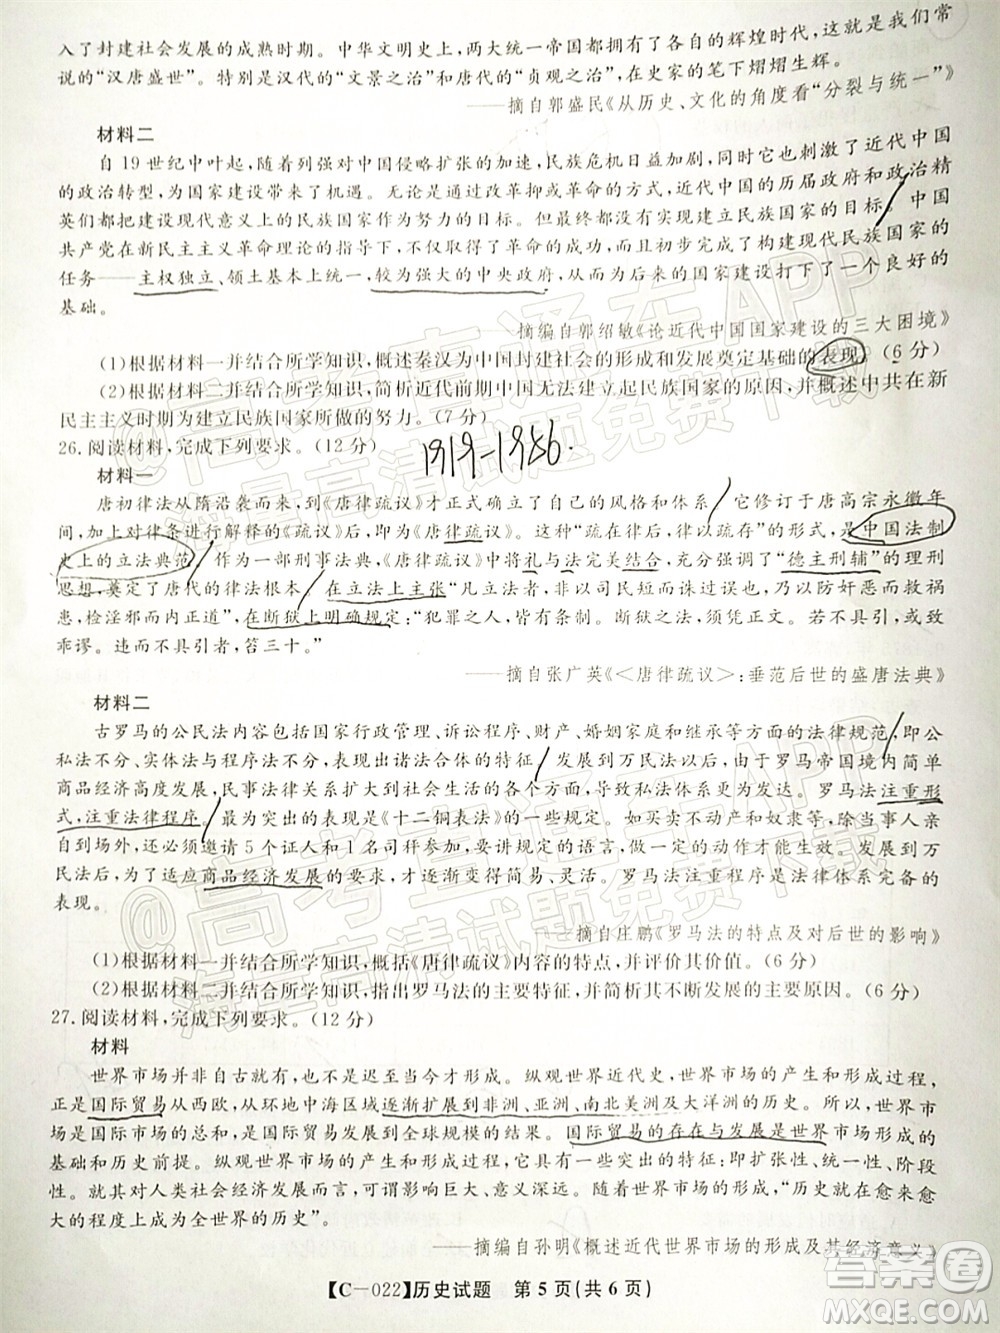 入了封建社会发展的成熟时期。中华文明史上，两大统一帝国都有各自的辉煌时代，这就是我们常
说的“汉唐盛世”。特别是汉代的“文景之治”和唐代的“贞观之治”，在史家的笔下熠熠生辉。
——摘自郭盛民《从历史、文化的角度看“分裂与统一”》
材料二
自19世纪中叶起，随着列强对中国侵略扩张的加速，民族危机日益加剧，同时它也刺激了近代中国
的政治转型，为国家建设带来了机遇。无论是通过改革抑或革命的方式，近代中国的历届政府和政治精
英们都把建设现代意义上的民族国家作为努力的目标，但都没有实现建立民族国家的目标。中国
共产党在新民主主义革命理论的指导下，不仅取得了革命的成功，而且初步完成了构建现代民族国家的
任务——主权独立、领土基本上统一，较为强大的中央政府，从而为后来的国家建设打下了一个良好的
基础。
——摘编自郭绍敏《论近代中国国家建设的三大困境》
(1)根据材料一并结合所学知识，概述秦汉为中国封建社会的形成和发展奠定基础的表现。(6分)
(2)根据材料二并结合所学知识，简析近代前期中国无法建立起民族国家的原因，并概述中共在新
民主主义革命时期为建立民族国家所做的努力。(7分)
26.阅读材料，完成下列要求。(12分)
1919-1956.
材料一
唐初律法从隋沿袭而来，到《唐律疏议》才正式确立了自己的风格和体系，它修订于唐高宗永徽年
间，加上对律条进行解释的《疏议》后，即为《唐律疏议》。这种“疏在律后，律以疏存”的形式，是中国法制
史上的立法典范。作为一部刑事法典，《唐律疏议》中将礼与法完美结合，充分强调了“德主刑辅”的理刑
思想，奠定了唐代的律法根本，在立法上主张“凡立法者，非以司民短而诛过误也，乃以防奸恶而救祸
患，检淫邪而内正道”，在断狱上明确规定：“犯罪之人，皆有条制。断狱之法，须凭正文。若不具引，或致
乖谬。违而不具引者，笞三十。”
——摘自张广英《<唐律疏议>：垂范后世的盛唐法典》
材料二
古罗马的公民法内容包括国家行政管理、诉讼程序、财产、婚姻家庭和继承等方面的法律规范，即公
私法不分、实体法与程序法不分，表现出诸法合体的特征，发展到万民法以后，由于罗马帝国境内简单
商品经济高度发展，民事法律关系扩大到社会生活的各个方面，使其私法体系更为发达。罗马法注重形
式，注重法律程序。最为突出的表现是《十二铜表法》的一些规定。如买卖不动产和奴隶等，必须当事人亲
自到场外，还必须邀请5个证人和1名司秤参加，要讲规定的语言，做一定的动作才能生效。发展到万
民法后，为了适应商品经济发展的要求，才从形式上变得简易、灵活。罗马法注重程序是法律体系完备的
表现。
——摘自庄鹏《罗马法的特点及对后世的影响》
(1)根据材料一并结合所学知识，概括《唐律疏议》内容的特点，并评价其价值。(6分)
(2)根据材料二并结合所学知识，指出罗马法的主要特征，并简析其不断发展的主要原因。(6分)
27.阅读材料，完成下列要求。(12分)
材料
世界市场并非自古就有，也不是迟至当今才形成。纵观世界近代史，世界市场的产生和形成过程，
正是国际贸易从西欧，从环地中海区域逐渐扩展到非洲、亚洲、南北美洲及大洋洲的历史。所以，世界
市场是国际市场的总和，是国际贸易发展到全球规模的结果。国际贸易的存在与发展是世界市场形成的
基础和历史前提。纵观世界市场的产生和形成过程，它具有一些突出的特征：即扩张性、统一性、阶段
性，其对人类社会经济发展可谓影响巨大、意义深远。随着世界市场的形成，“历史就在愈来愈
大的程度上成为全世界的历史”。
——摘编自孙明《概述近代世界市场的形成及其经济意义》
【C—022】历史试题 第5页(共6页)
@高考直通车APP
海量高清试题免费下载
@高考直通车APP
海量高清试题免费下载
答案圈
MXQE.COM